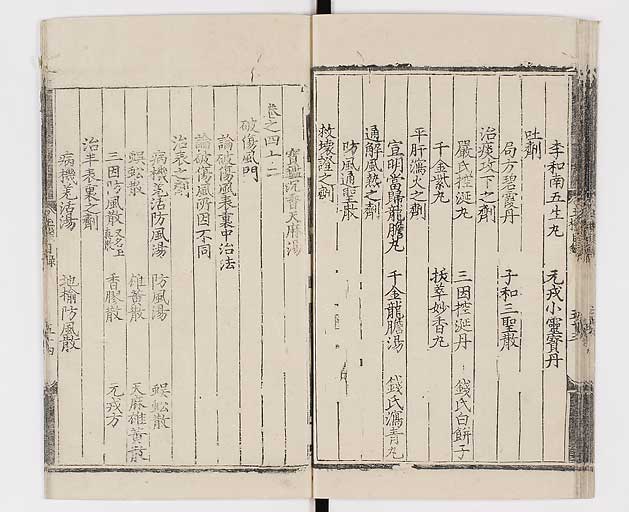 李和南五生丸　元戎小靈寶丹
吐劑
局方碧霞丹　子和三聖散
治痰攻下之劑
嚴氏控涎丸　三因控涎丹　錢氏白餅子
千金紫丸　拔萃妙香丸
平肝瀉火之劑
宣明當歸龍膽丸　千金龍膽湯　錢氏瀉青丸
通解風熱之劑
防風通聖散
救壞證之劑
寶鑑沉香天麻湯
卷之四十二
破傷風門
論破傷風表裏中治法
論破傷風所因不同
治表之劑
病機羌活防風湯　防風湯　蜈蚣散
蜈蚣散　雄黃散　天麻雄黃散
三因防風散又名玉真散　香膠散　元戎方
治半表裏之劑
病機羌活湯　地榆防風散